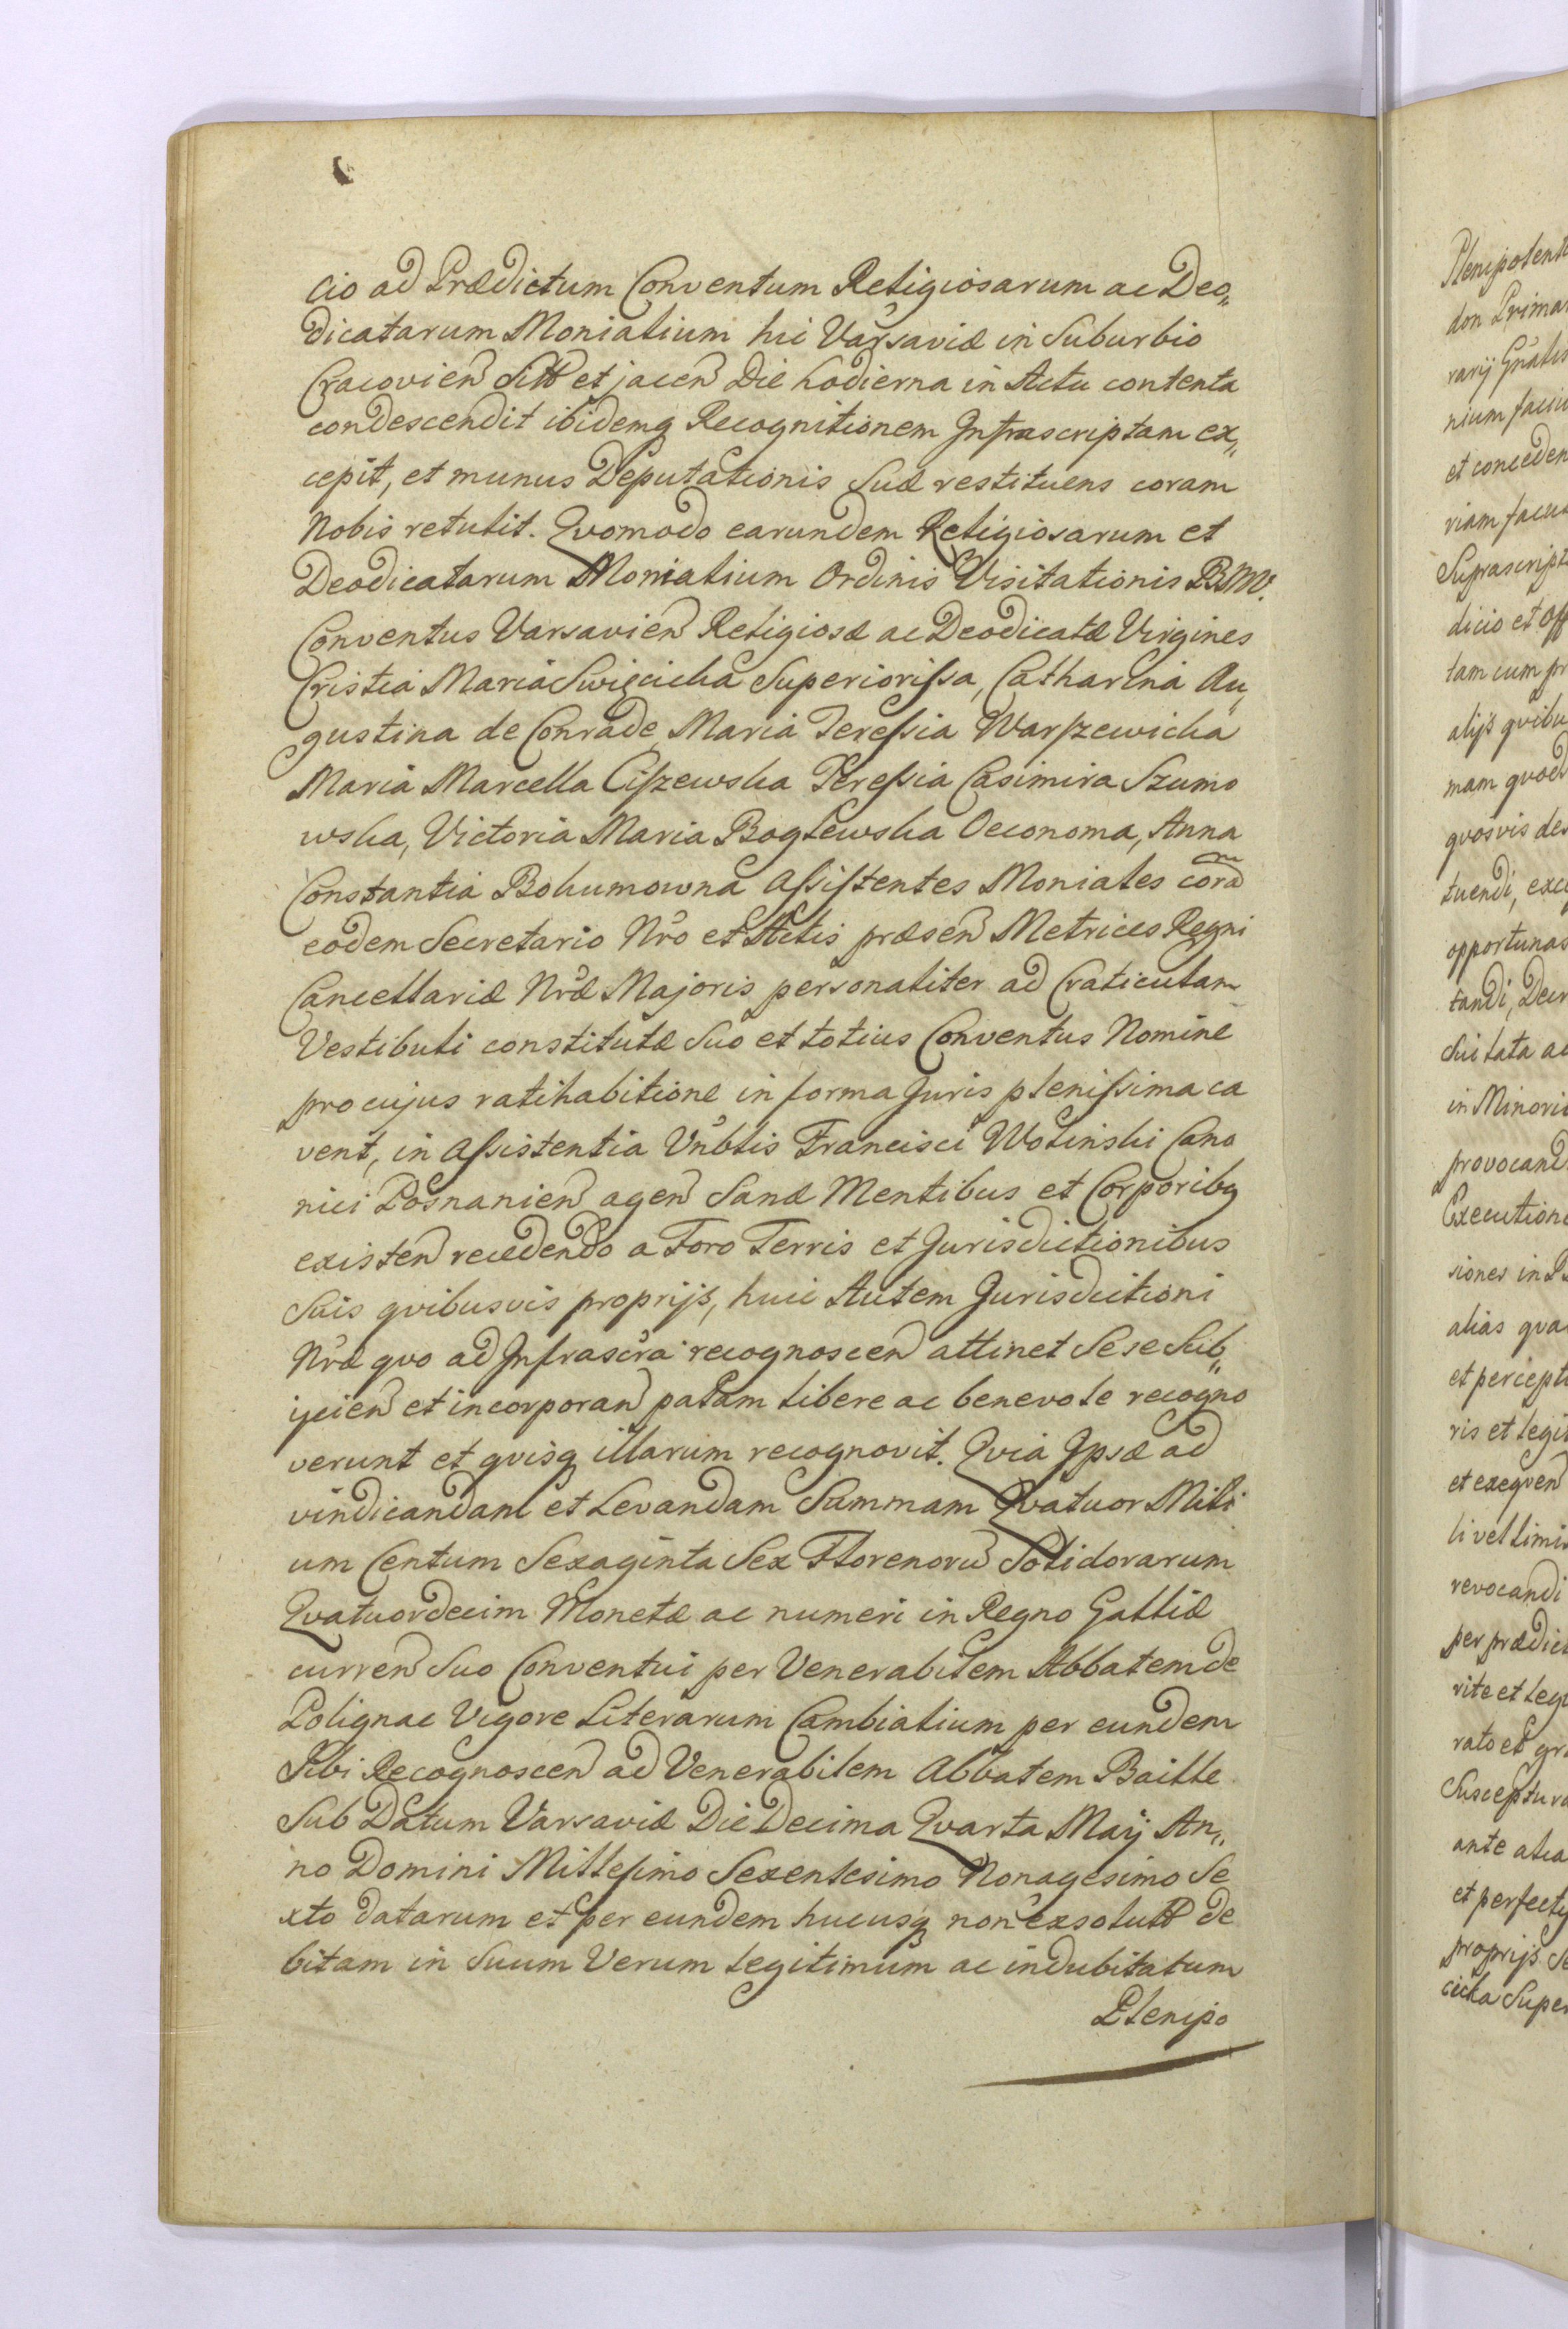 cio ad Prædictum Conventum Religiosarum ac Deo„
dicatarum Monialium hic Varsaviæ in Suburbio
Cracovien Sitt et jacen Die hodierna in Actu contenta
condescendit ibidemq Recognitionem Infrascriptam ex„
cepit, et munus Deputationis Suæ restituens coram
Nobis retulit. Qvomodo earundem Religiosarum et
Deodicatarum Monialium Ordinis Visitationis B.M.V.
Conventus Varsavien Religiosæ ac Deodicatæ Virgines
Cristia Maria Swięcicka Superiorissa, Catharina Au„
gustina de Conrade Maria Teressia Warszewicka
Maria Marcella Ciszewska Teressia Casimira Szumo
wska, Victoria Maria Boglewska Oeconoma, Anna
Constantia Bokumowna Assistentes Moniales corã
eodem Secretario Nro et Actis præsen Metrices Regni
Cancellariæ Nræ Majoris personaliter ad Craticulam
Vestibuli constitutæ Suo et totius Conventus Nomine
pro cujus ratihabitione in forma Juris plenissima ca
vent, in Assistentia Vnblis Francisci Wolinski Cano
nici Posnanien agen Sanæ Mentibus et Corporibq
existen recedendo a Foro Terris et Jurisdictionibus
Suis qvibusvis proprijs, huic Autem Jurisdictioni
Nræ qvo ad Infrascra recognoscen attinet Sese Sub„
ijcien et incorporan palam libere ac benevole recogno
verunt et qvisq illarum recognovit. Qvia Ipsæ ad
vindicandam et Levandam Summam Qvatuor Mili
um Centum Sexaginta Sex Florenorũ Solidorarum
Qvatuordecim Monetæ ac numeri in Regno Galliæ
curren Suo Conventui per Venerabilem Abbatem de
Polignac Vigore Literarum Cambialium per eundem
Sibi Recognoscen ad Venerabilem Abbatem Baille
Sub Datum Varsaviæ Die Decima Qvarta Maij An„
no Domini Millesimo Sexentesimo Nonagesimo Se
xto datarum et per eundem hucusq non exsolutt de
bitam in Suum Verum legitimum ac indubitatum
Plenipo
Plenipotenti
don Primar
nium facu
et conceden
riam facu
Suprascript
dicio et Off
tam cum pr
alijs qvibu
mam qvod
qvosvis de
tuendi, exc
opportunas
tandi, Decr
in Minori
provocand
Execution
siones in
alias qva
et percept
ris et legit
et exeqven
li vel limi
revocandi
per prædict
rite et leg
rato et gr
Susceptur
ante alia
et perfect
proprijs Se
cicka Super